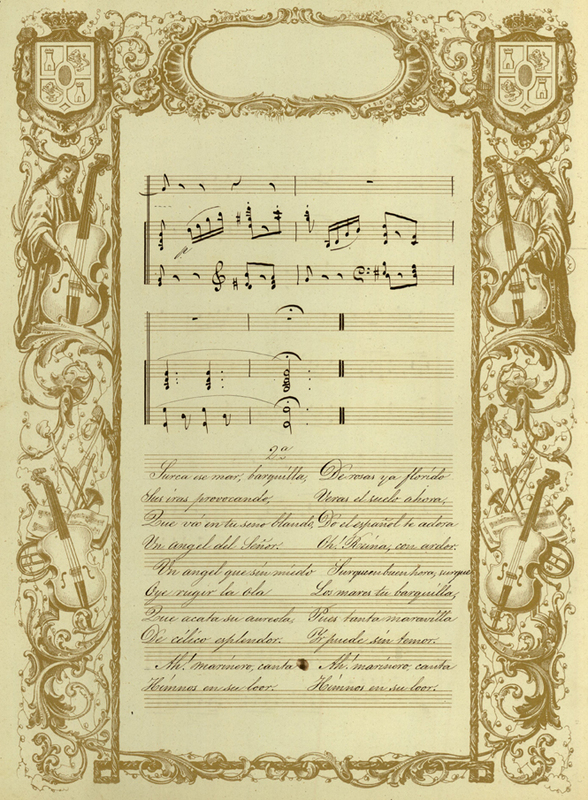 2ª
Surca ese mar, barquilla,
Sus iras provocando,
Que va en tu seno blando,
Un angel del Señor.
Un angel que sin miedo
Oye rugir la ola
Que acata su aureola,
De célico esplendor.
Ah! marinero, canta
Himnos en su loor.
De rosas ya florido
Veras el suelo ahora,
Do el español te adora
Oh! Reina, con ardor.
Surque en buen hora, surque
Los mares tu barquilla,
Pues tanta maravilla
Yr puede sin temor.
Ah! marinero, canta
Himnos en su loor.